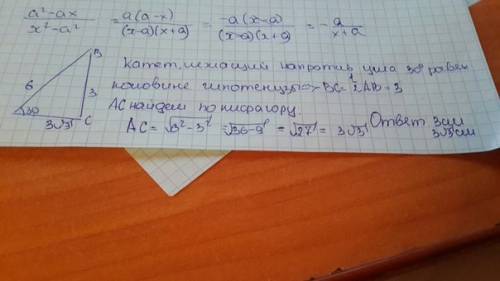 a² - ax / x² - a² = a(a-x) / (x-a)(x+a) = -a(x-a) / (x-a)(x+a) = - a / x+a
B
6
3
30
3√3
C
Катет, лежащий напротив угла 30° равен
половине гипотенузы => BC = 1/2 AB = 3
AC найдем по пифагору
AC = √6² - 3² = √36-9 = √27 = 3√3
Ответ 3см
3√3см